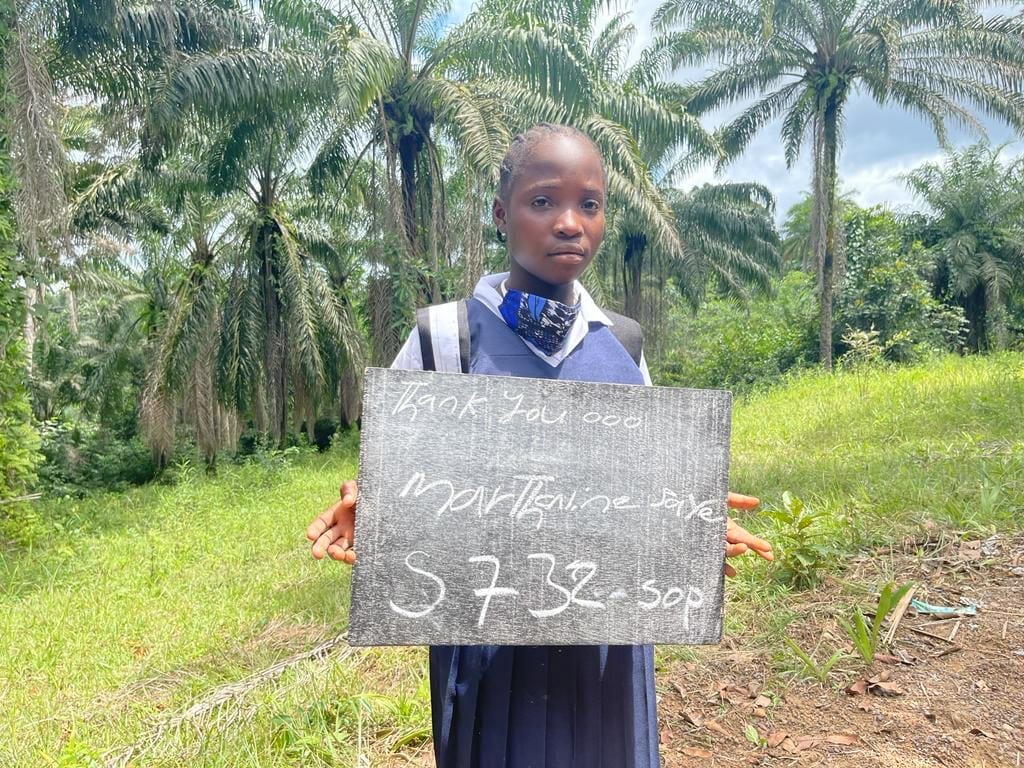 Thank you ooo
Marthaline saye
S 732-sop